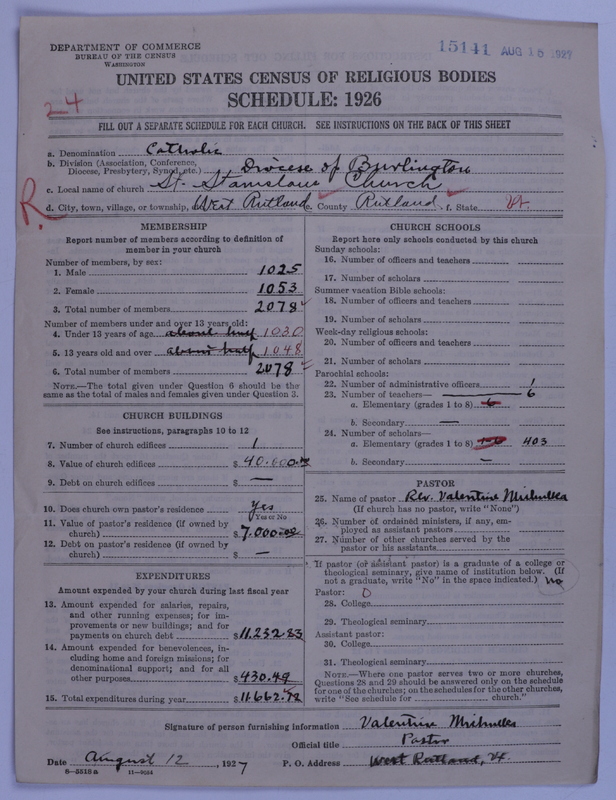 DEPARTMENT OF COMMERCE
BUREAU OF THE CENSUS
WASHINGTON
15141 AUG 15 1927
UNITED STATES CENSUS OF RELIGIOUS BODIES
SCHEDULE: 1926
24
FILL OUT A SEPARATE SCHEDULE FOR EACH CHURCH. SEE INSTRUCTIONS ON THE BACK OF THIS SHEET
a. Denomination Catholic
b. Division (Association, Conference, Diocese, Presbytery, Synod, etc.) Diocese of Burlington
c. Local name of church St. Stanislaus Church
R. d. City, town, village, or township, West Rutland e. County Rutland f. State Vt.
MEMBERSHIP
Report number of members according to definition of
member in your church
Number of members, by sex:
1. Male 1025
2. Female 1053
3. Total number of members 2078
Number of members under and over 13 years old:
4. Under 13 years of age about half 1030
5. 13 years old and over about half 1048
6. Total number of members 2078
NOTE.—The total given under Question 6 should be the
same as the total of males and females given under Question 3.
CHURCH BUILDINGS
See instructions, paragraphs 10 to 12
7. Number of church edifices 1
8. Value of church edifices $ 40.000.00
9. Debt on church edifices $ —
10. Does church own pastor's residence Yes
Yes or No
11. Value of pastor's residence (if owned by
church) $ 7.000.00
12. Debt on pastor's residence (if owned by
church) $ —
EXPENDITURES
Amount expended by church during last fiscal year
13. Amount expended for salaries, repairs,
and other running expenses; for im-
provements or new buildings; and for
payments on church debt $ 11.232.23
14. Amount expended for benevolences, in-
cluding home and foreign missions; for
denominational support; and for all
other purposes $ 430.49
15. Total expenditures during year $ 11.662.72
CHURCH SCHOOLS
Report here only schools conducted by this church
Sunday schools:
16. Number of officers and teachers
17. Number of scholars
Summer vacation Bible schools:
18. Number of officers and teachers
19. Number of scholars
Week-day religious schools:
20. Number of officers and teachers
21. Number of scholars
Parochial schools:
22. Number of administrative officers 1
23. Number of teachers— 6
a. Elementary (grades 1 to 8) 6
b. Secondary —
24. Number of scholars—
a. Elementary (grades 1 to 8) 403
b. Secondary —
PASTOR
25. Name of pastor Rev. Valentine
(If church has no pastor, write "None")
26. Number of ordained ministers, if any, em-
ployed as assistant pastors
27. Number of other churches served by the
pastor or his assistants
If pastor (or assistant pastor) is a graduate of a college or
theological seminary, give name of institution below. (If
not a graduate, write "No" in the space indicated.) No
Pastor: 0
28. College
29. Theological seminary
Assistant pastor:
30. College
31. Theological seminary
NOTE.—Where one pastor serves two or more churches,
Questions 28 and 29 should be answered only on the schedule
for one of the churches; on the schedules for the other churches,
write "See schedule for church."
Signature of person furnishing information Valentine
Official title Pastor
Date August 12, 1927 P. O. Address West Rutland, Vt.
8-5518a 11-9054